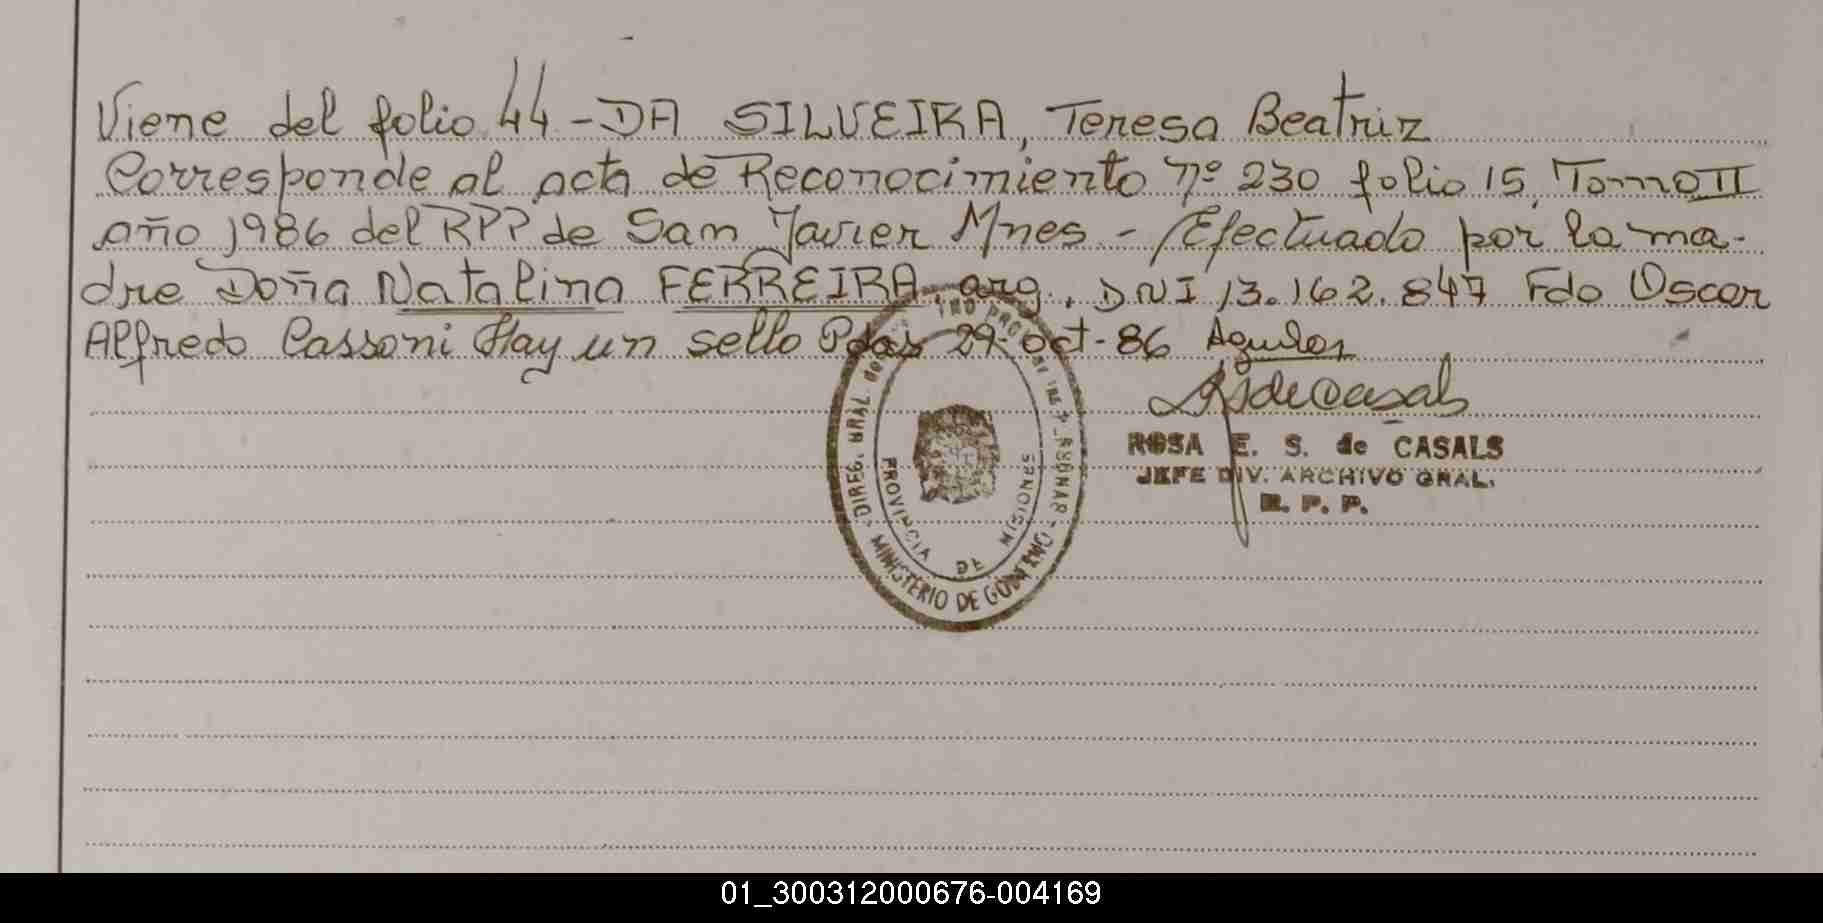 Viene del folio 44 - DA SILVEIRA, Teresa Beatriz
Corresponde al acta de Reconocimiento nº 230 folio 15, Tomo II
año 1986 del RPP de San Javier Mnes - Efectuado por la ma-
dre Doña Natalina FERREIRA, arg., DNI 13.162.847 Fdo Oscar
Alfredo Cassoni Hay un sello Pdas 29-oct-86 Aguilar
ROSA E. S. de CASALS
JEFE DIV. ARCHIVO GRAL.
R. P. P.
DIREG. GRAL. de
MINISTERIO DE GOBIERNO
PROVINCIA DE MISIONES
01_300312000676-004169